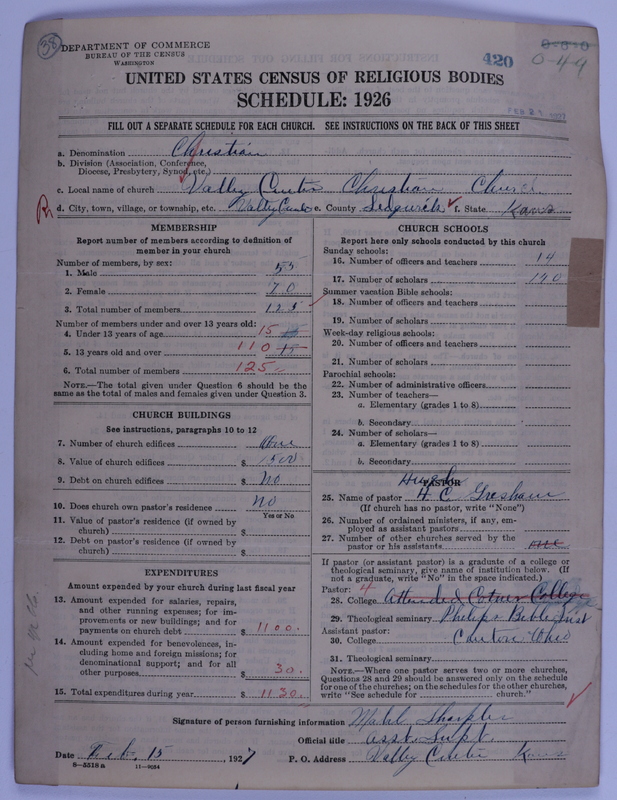 38
DEPARTMENT OF COMMERCE
BUREAU OF THE CENSUS
WASHINGTON
420
0-0-0
0-49
UNITED STATES CENSUS OF RELIGIOUS BODIES
SCHEDULE: 1926
FILL OUT A SEPARATE SCHEDULE FOR EACH CHURCH. SEE INSTRUCTIONS ON THE BACK OF THIS SHEET
a. Denomination Christian
b. Division (Association, Conference,
Diocese, Presbytery, Synod, etc.)
c. Local name of church Vally Center Christian Church
d. City, town, village, or township, etc. Vally Center e. County Sedgwick f. State Kans
MEMBERSHIP
Report number of members according to definition of
member in your church
Number of members, by sex:
1. Male 55
2. Female 70
3. Total number of members 125
Number of members under and over 13 years old:
4. Under 13 years of age 15
5. 13 years old and over 110 15
6. Total number of members 125
NOTE.—The total given under Question 6 should be the
same as the total of males and females given under Question 3.
CHURCH BUILDINGS
See instructions, paragraphs 10 to 12
7. Number of church edifices One
8. Value of church edifices $ 1500
9. Debt on church edifices $ No
10. Does church own pastor's residence No
Yes or No
11. Value of pastor's residence (if owned by
church) $
12. Debt on pastor's residence (if owned by
church) $
EXPENDITURES
Amount expended by your church during last fiscal year
13. Amount expended for salaries, repairs,
and other running expenses; for im-
provements or new buildings; and for
payments on church debt $ 1100.
14. Amount expended for benevolences, in-
cluding home and foreign missions; for
denominational support; and for all
other purposes $ 30.
15. Total expenditures during year $ 1130.
CHURCH SCHOOLS
Report here only schools conducted by this church
Sunday schools:
16. Number of officers and teachers 14
17. Number of scholars 140
Summer vacation Bible schools:
18. Number of officers and teachers
19. Number of scholars
Week-day religious schools:
20. Number of officers and teachers
21. Number of scholars
Parochial schools:
22. Number of administrative officers
23. Number of teachers—
a. Elementary (grades 1 to 8)
b. Secondary
24. Number of scholars—
a. Elementary (grades 1 to 8)
b. Secondary
PASTOR
Hugh
25. Name of pastor H. C. Gresham
(If church has no pastor, write "None")
26. Number of ordained ministers, if any, em-
ployed as assistant pastors
27. Number of other churches served by the
pastor or his assistants one
If pastor (or assistant pastor) is a graduate of a college or
theological seminary, give name of institution below. (If
not a graduate, write "No" in the space indicated.)
Pastor: 4
28. College Attended Cotner College
29. Theological seminary Philips Bible Inst
Assistant pastor:
30. College Canton Ohio
31. Theological seminary
NOTE.—Where one pastor serves two or more churches,
Questions 28 and 29 should be answered only on the schedule
for one of the churches; on the schedules for the other churches,
write "See schedule for church."
Signature of person furnishing information Mabel Sharpler
Official title asst. Supt.
Date Feb. 15 1927 P. O. Address Vally Center Kans
8-5518a 11-9054